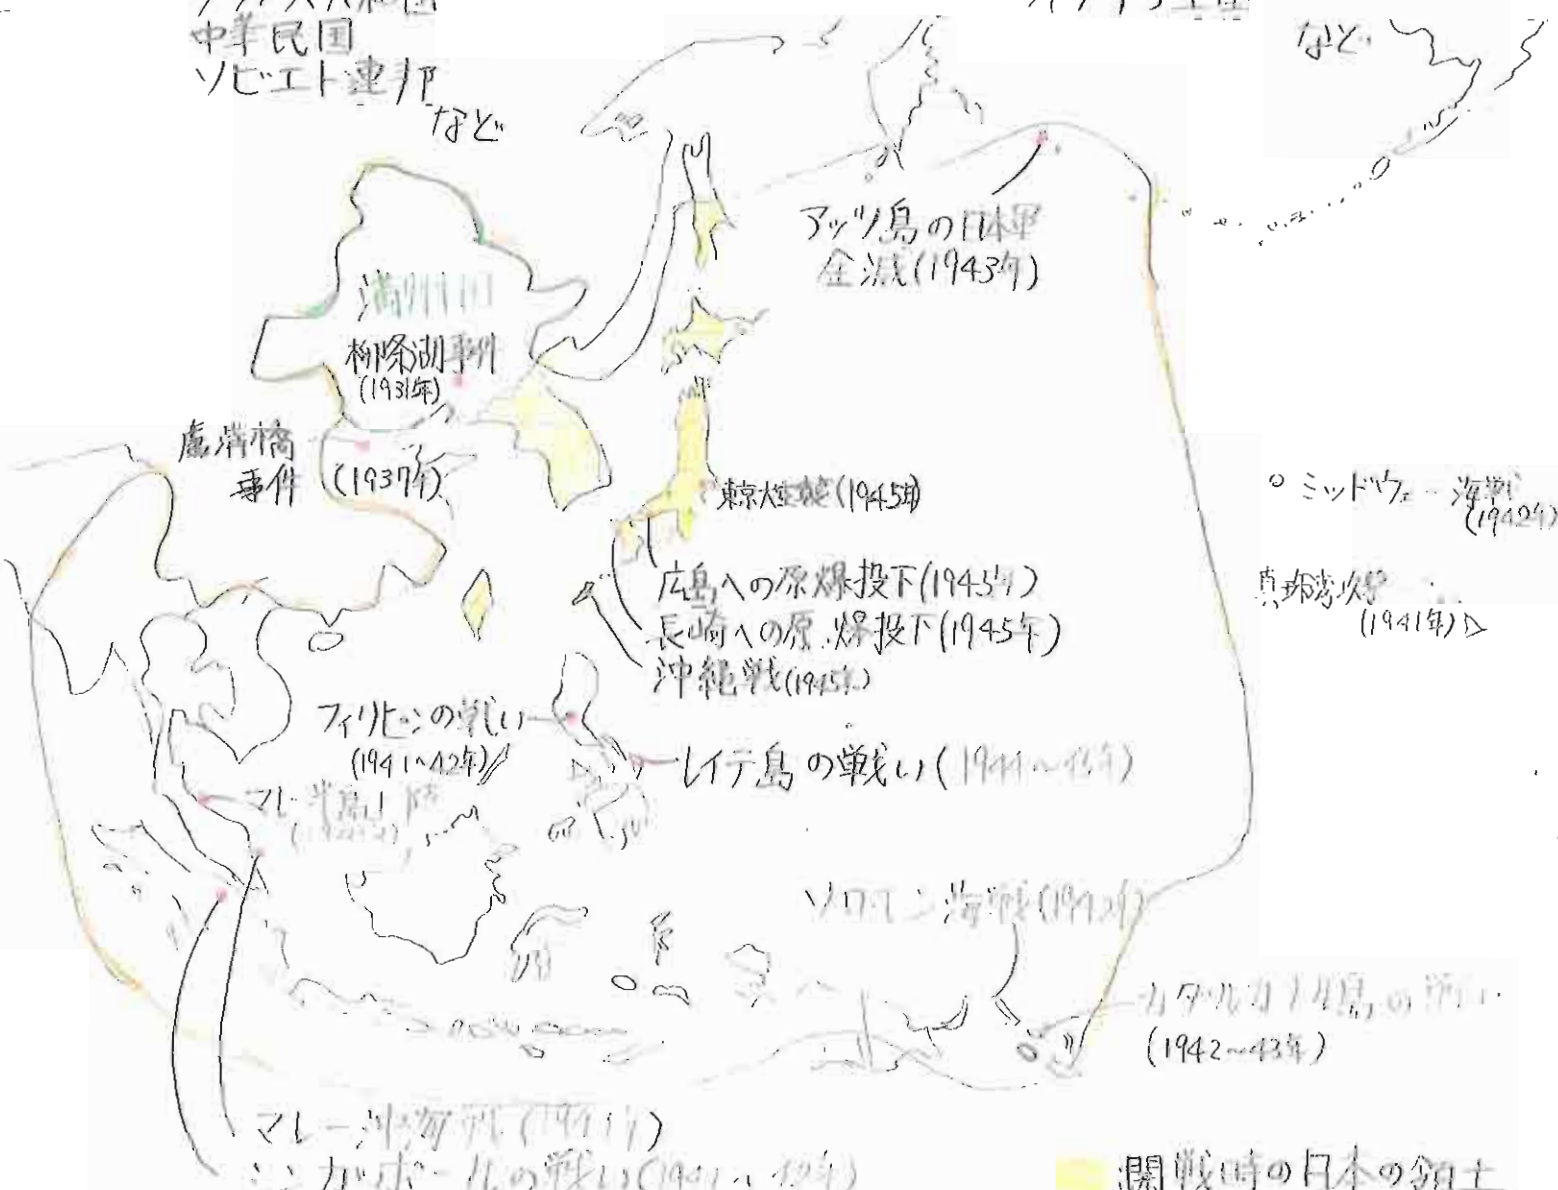 中華民国
ソビエト連邦
など
など
アッツ島の日本軍
全滅(1943年)
満州国
柳条湖事件
(1931年)
盧溝橋
事件 (1937年)
東京大空襲(1945年)
ミッドウェー海戦
(1942年)
広島への原爆投下(1945年)
真珠湾攻撃
(1941年)
長崎への原爆投下(1945年)
沖縄戦(1945年)
フィリピンの戦い
(1941~42年)
レイテ島の戦い(1944~45年)
マレー半島上陸
ソロモン海戦(1942年)
ガダルカナル島の戦い
(1942~43年)
マレー沖海戦(1941年)
シンガポールの戦い(1941~42年)
開戦時の日本の領土